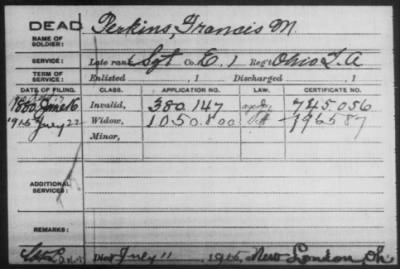 DEAD
NAME OF SOLDIER: Perkins, Francis M.
SERVICE: Late rank Sgt Co. E, 1 Reg't Ohio L. A
TERM OF SERVICE: Enlisted , 1 Discharged , 1
DATE OF FILING. CLASS. APPLICATION NO. LAW. CERTIFICATE NO.
1880 June 16 Invalid, 380.147 745.056
1915 July 22 Widow, 1.050.800 796587
Minor,
ADDITIONAL SERVICES:
REMARKS:
Died July 11, 1915, New London, Oh.